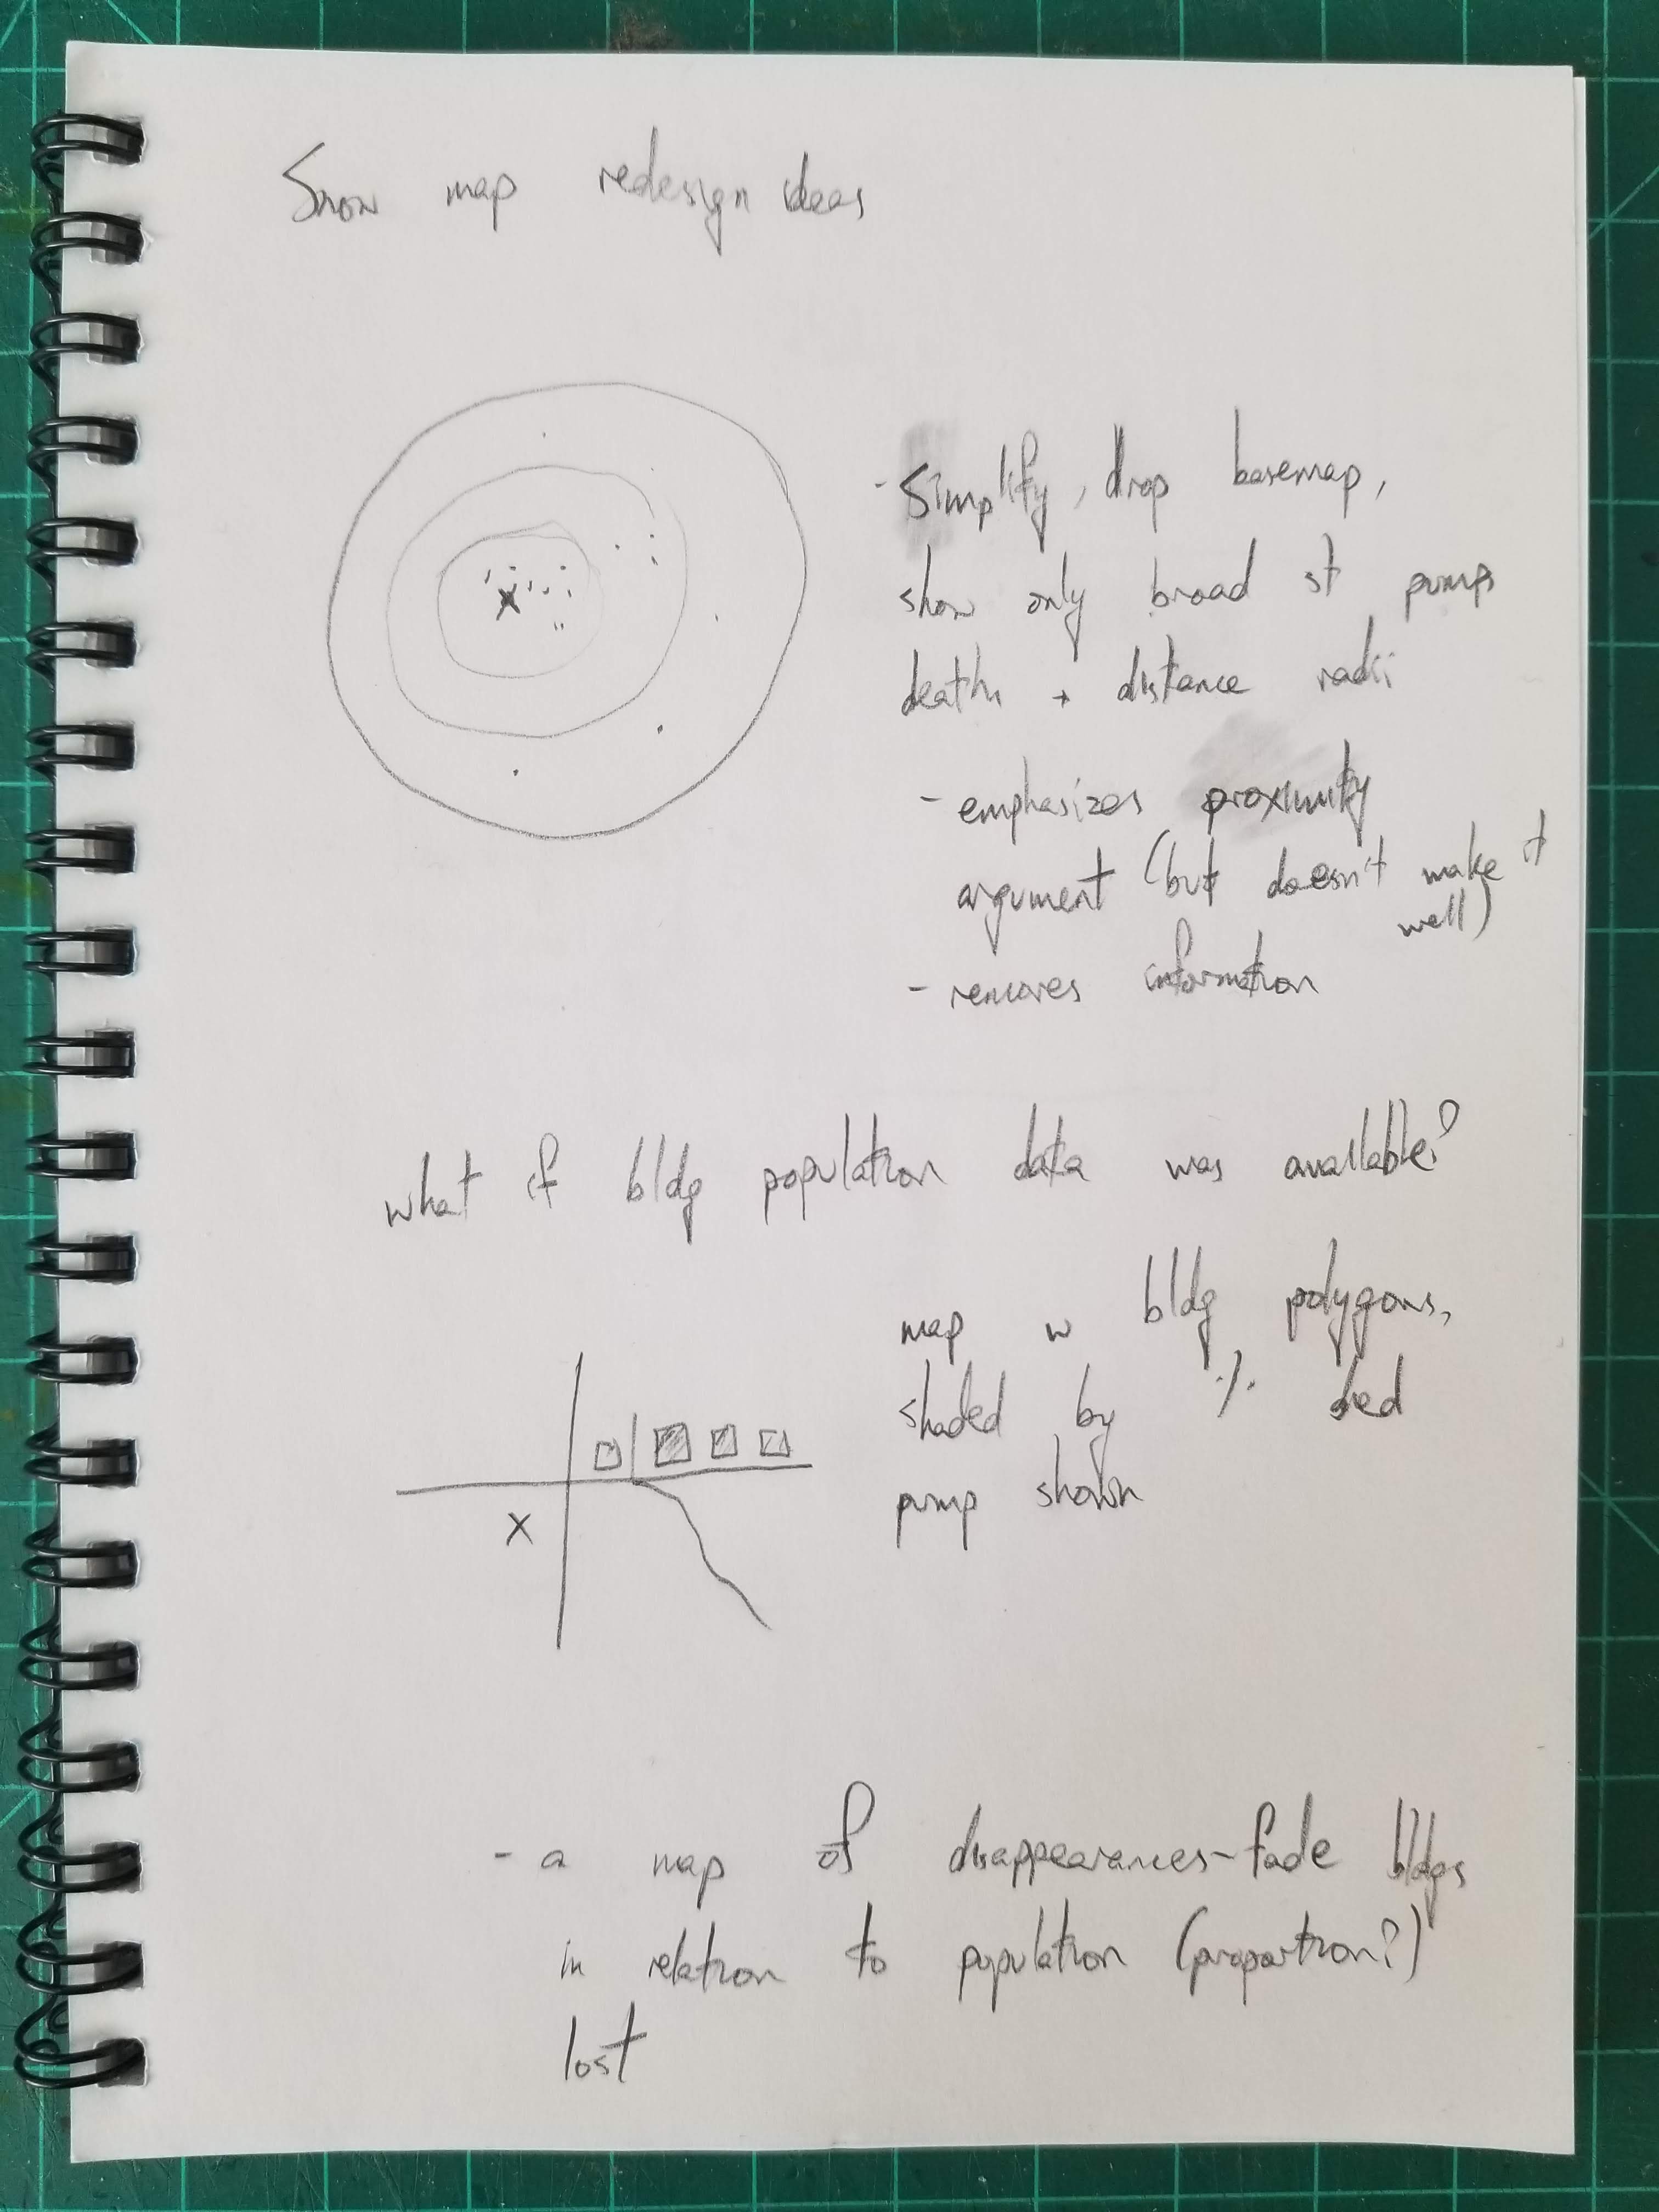 Snow map redesign ideas
- Simplify, drop basemap,
show only broad st pump
deaths + distance radii
- emphasizes proximity
argument (but doesn't make it
well)
- removes information
what if bldg population data was available?
map w bldg polygons,
shaded by % died
pump shown
- a map of disappearances - fade bldgs
in relation to population (proportion?)
lost